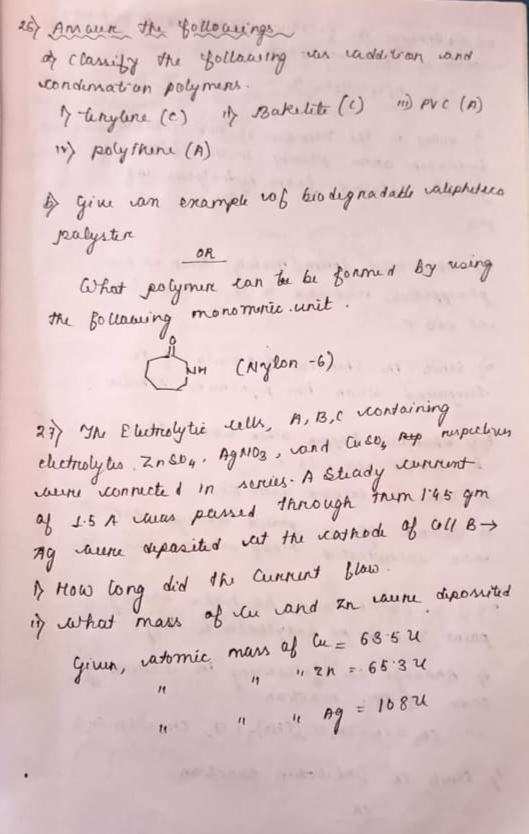 26) Answer the followings
a) Classify the following as addition and
condensation polymers.
i) terylene (C) ii) Bakelite (C) iii) PVC (A)
iv) polythene (A)
b) Give an example of biodegradable aliphatic
polyster
OR
What polymer can be formed by using
the following monomeric unit.
O
NH (Nylon -6)
27) The Electrolytic cells, A, B, C containing
electrolytes ZnSO4, AgNO3, and CuSO4 respectively
were connected in series. A Steady current
of 1.5 A was passed through them 1.45 gm
Ag were deposited at the cathode of cell B →
i) How long did the current flow.
ii) What mass of Cu and Zn were deposited
Given, atomic mass of Cu = 63.5 u
" " " Zn = 65.3 u
" " " Ag = 108 u